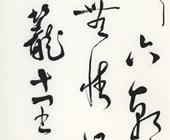 六朝
無情
籠十里